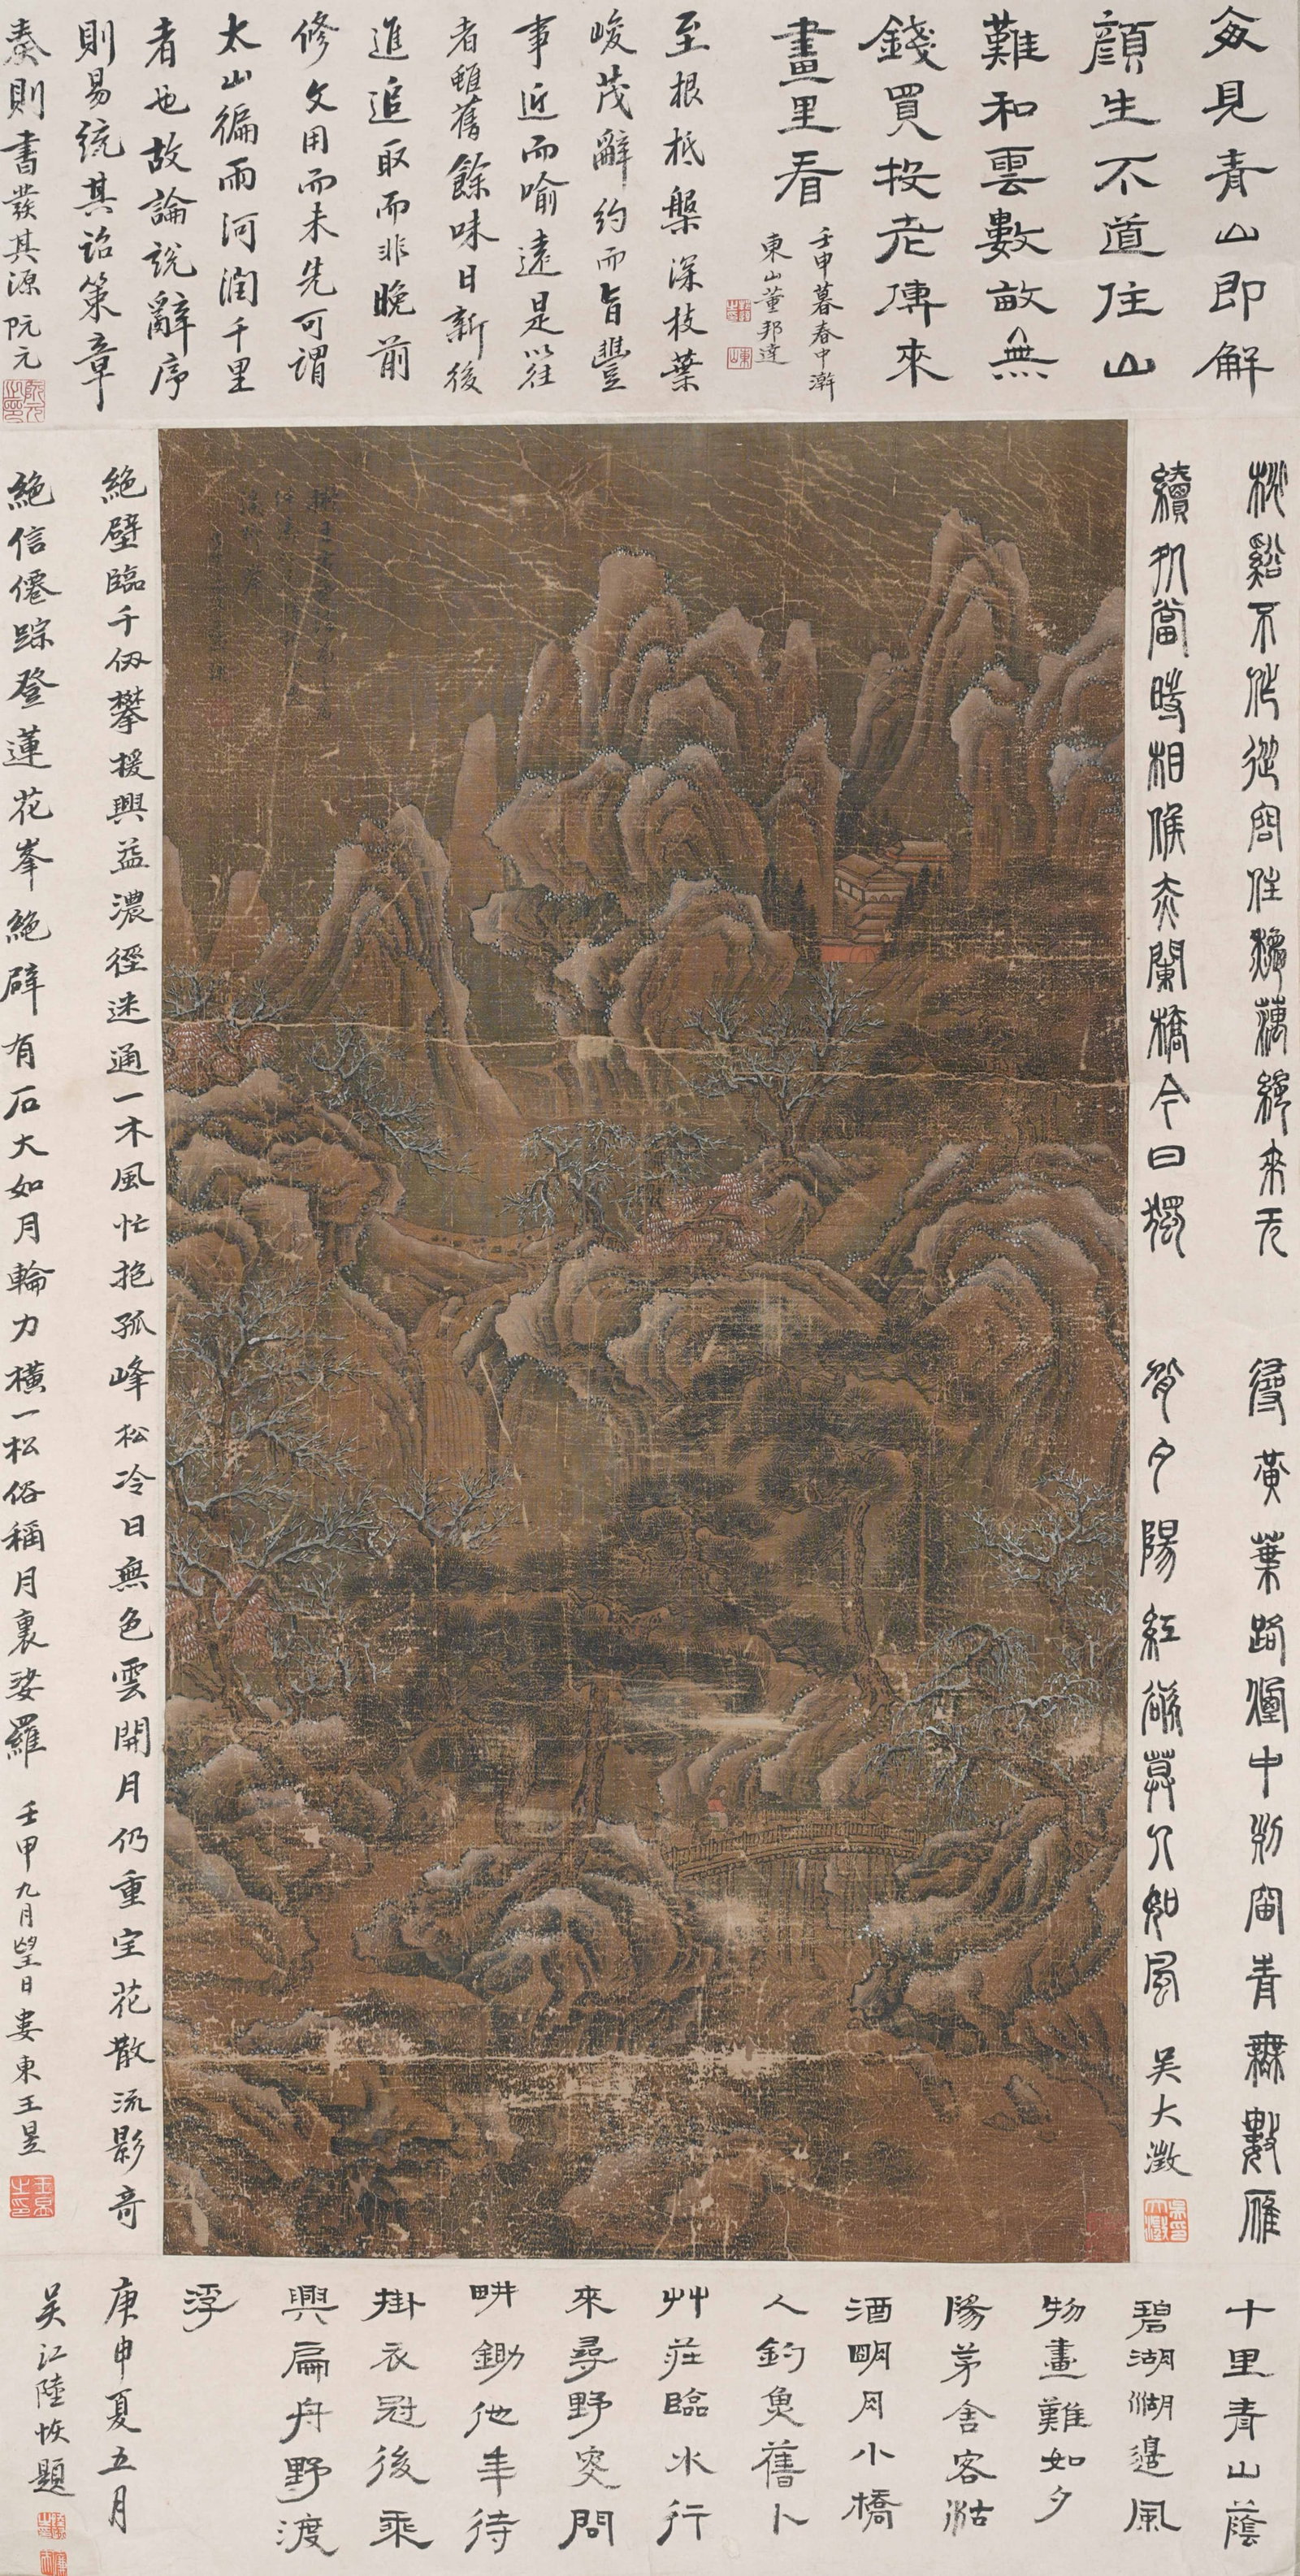 每見青山即解
顔生不道住山
難和雲數畝無
錢買投老傳來
畫里看
壬申暮春中澣
東山董邦達
至根柢槃深枝葉
峻茂辭約而旨豐
事近而喻遠是以往
者雖舊餘味日新後
進追取而非晚前
修文用而未先可謂
太山徧雨河潤千里
者也故論說辭序
則易統其詔策章
奏則書發其源阮元
絕壁臨千仞攀援興益濃徑迷通一木風忙抱孤峰松冷日無色雲開月仍重空花散流影奇
絕信僊踪登蓮花峯絕辟有石大如月輪力橫一松俗稱月裏娑羅
壬申九月望日婁東王昱
桃谿不作從容住秋藕絕來无
續処當時相候赤闌橋今日獨
尋黃葉路煙中列岫青無數雁
背夕陽紅欲莫人如風
吴大澂
十里青山蔭
碧湖湖邊風
物畫難如夕
陽茅舍客沽
酒明月小橋
人釣魚舊卜
艸莊臨水行
來尋野叟問
畊鋤他年待
掛衣冠後乘
興扁舟野渡
浮
庚申夏五月
吴江陸恢題